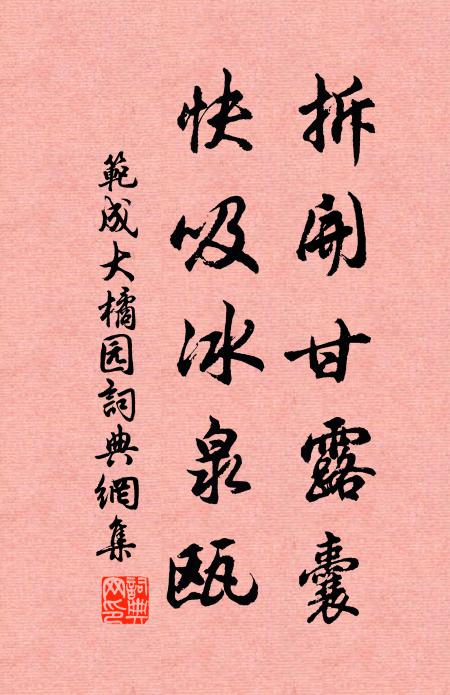 拆開甘露囊
快吸冰泉瓯
範成大橘园詞典網集
詞典